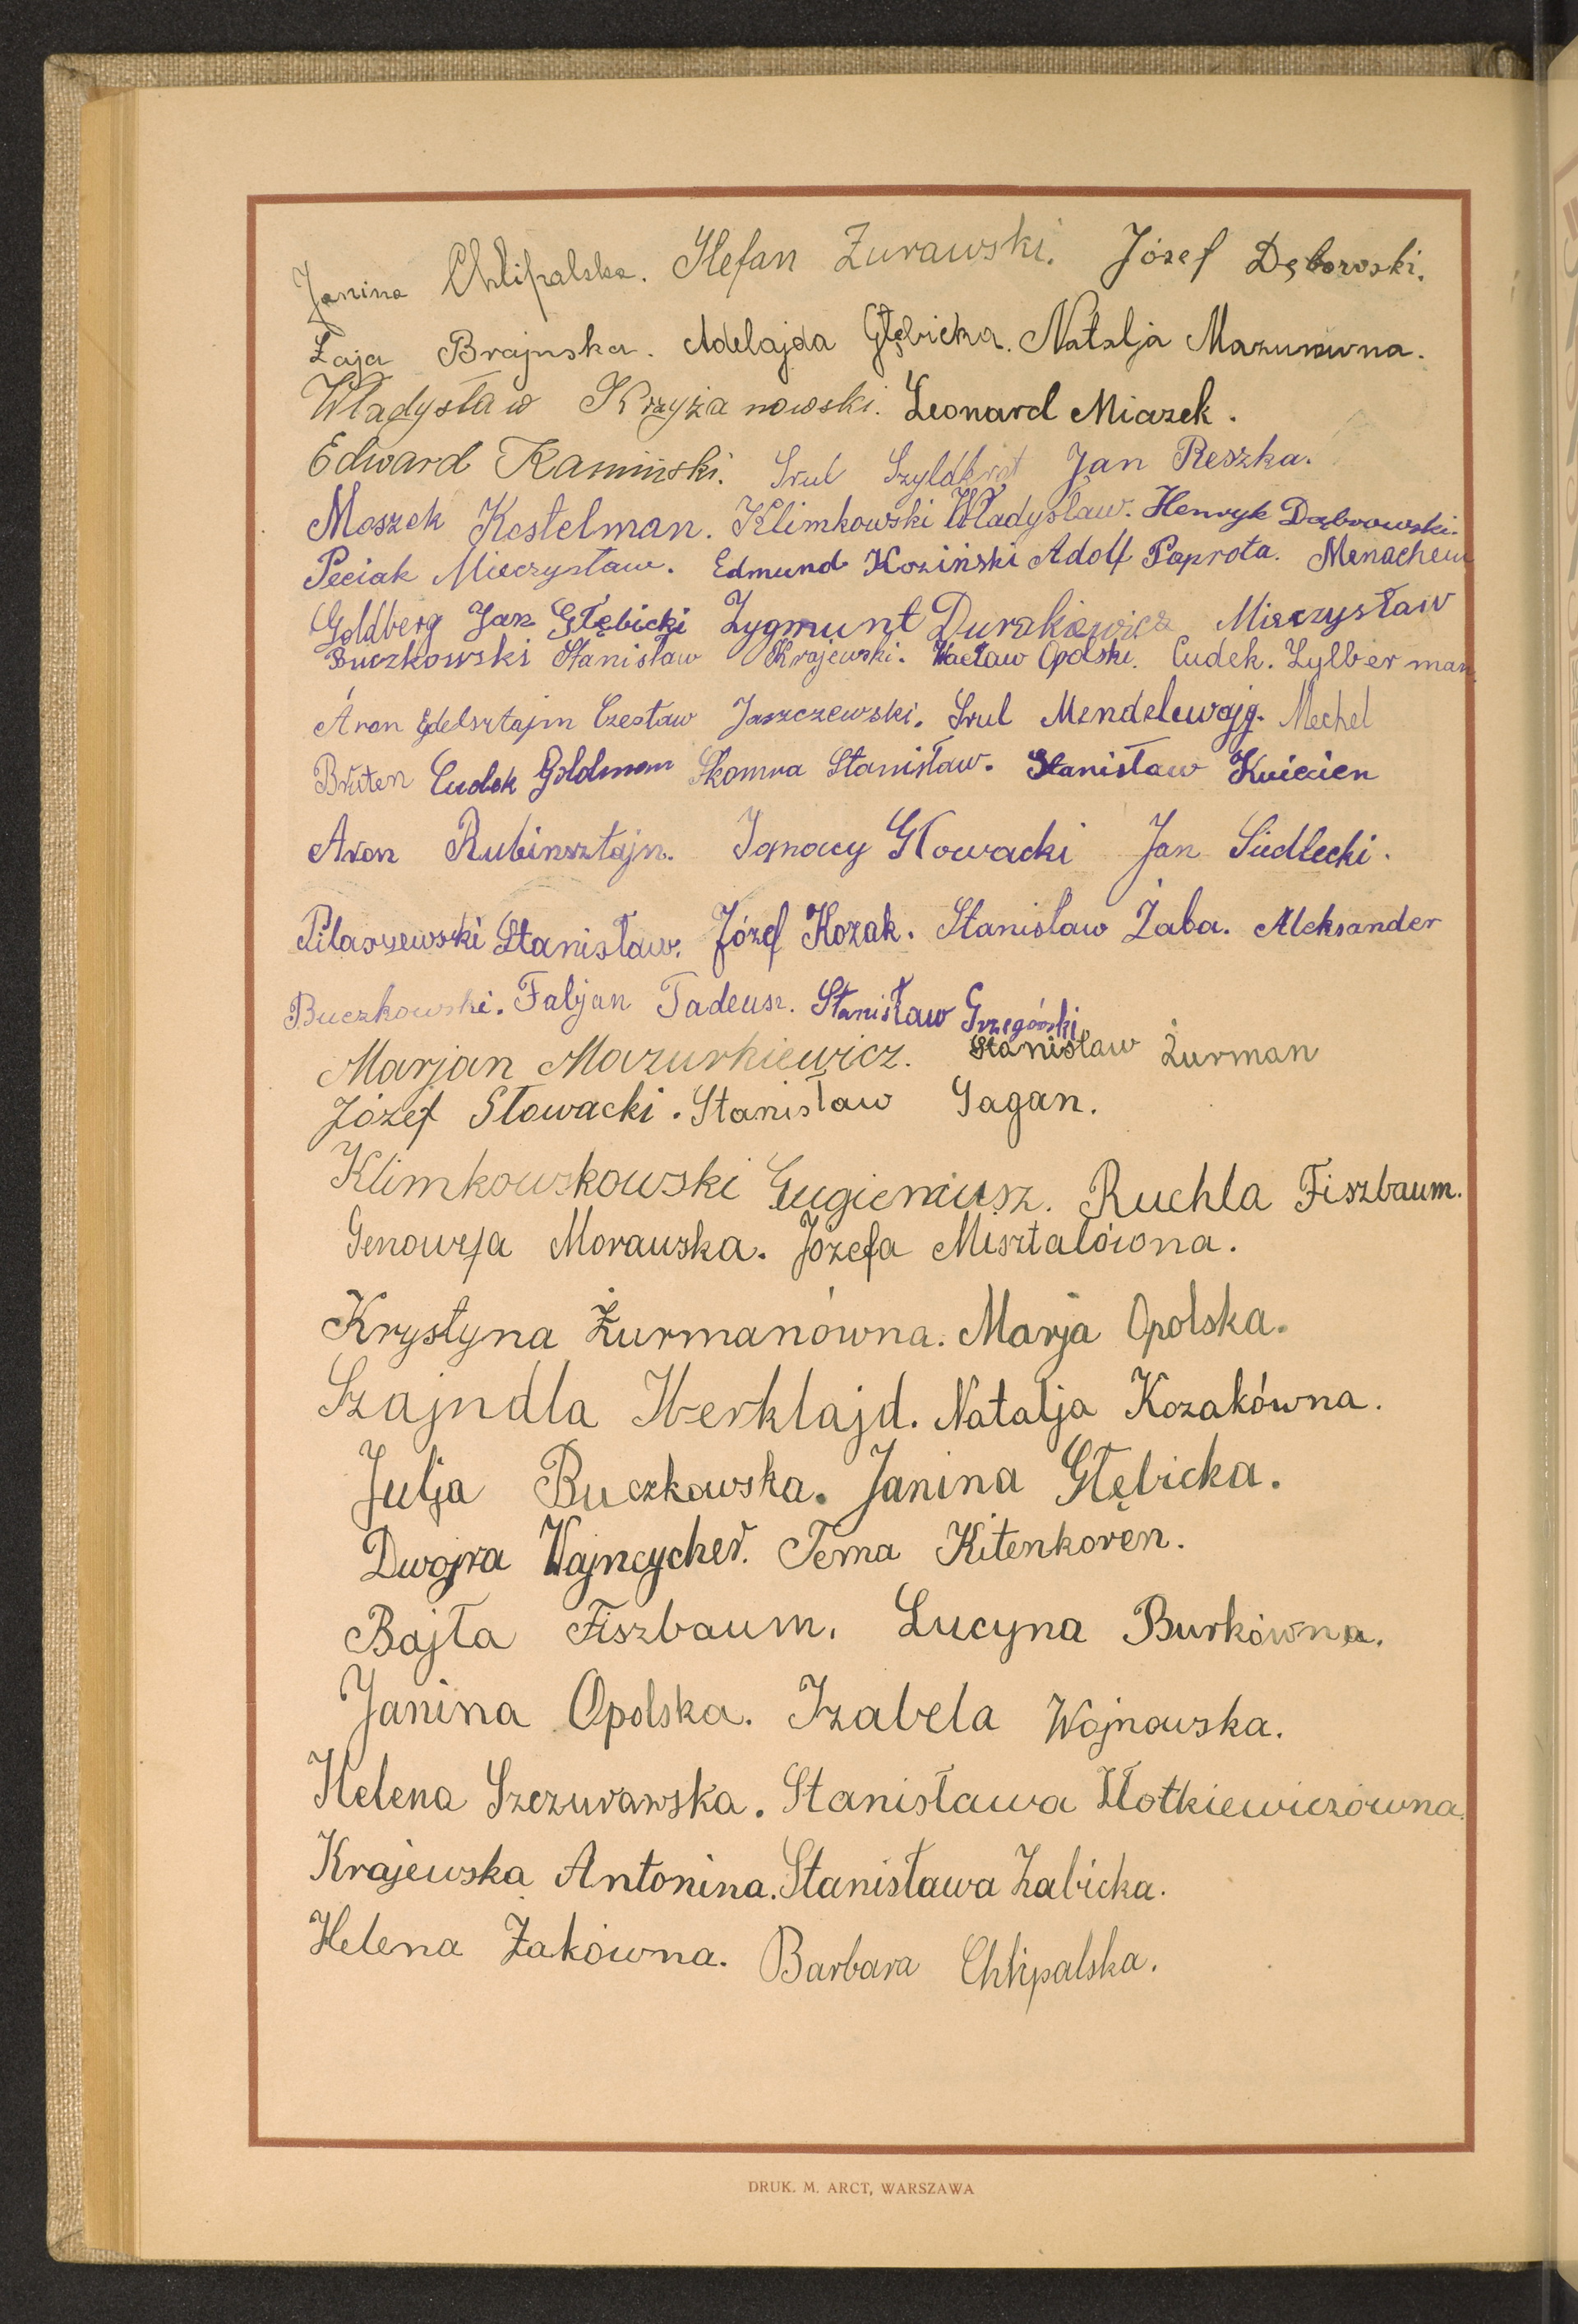 Janina Chlipalska. Stefan Żurawski. Józef Dęboroski.
Łaja Brajnska. Adelajda Głębicka. Natalja Mazurówna.
Władysław Krzyżanowski. Leonard Miazek.
Edward Kamiński. Srul Szyldkrot Jan Reszka.
Moszek Kestelman. Klimkowski Władysław. Henryk Dąbrowski.
Peciak Mieczysław. Edmund Koziński Adolf Paprota. Menachem
Goldberg Jan Głębicki Zygmunt Durakiewicz Mieczysław
Buczkowski Stanisław Krajewski. Wacław Opolski. Cudek. Zylberman
Aron Edelsztajn Czesław Jaszczewski. Srul Mendelewajg. Mechel
Bruten Cudek Goldman Skomra Stanisław. Stanisław Kwiecien
Aron Rubinsztajn. Ignacy Głowacki Jan Siedlecki.
Pilaszewski Stanisław. Józef Kozak. Stanisław Żaba. Aleksander
Buczkowski. Faljan Tadeusz. Stanisław Grzegórski
Marjan Mazurkiewicz. Stanisław Żurman
Józef Słowacki. Stanisław Gagan.
Klimkowskowski Eugieniusz. Ruchla Fiszbaum.
Genowefa Morawska. Józefa Misztalówna.
Krystyna Żurmanówna. Marja Opolska.
Szajndla Werklajd. Natalja Kozakówna.
Julja Buczkowska. Janina Głębicka.
Dwojra Wajncycher. Tema Kitenkoren.
Bajła Fiszbaum. Lucyna Burkówna.
Janina Opolska. Izabela Wojnowska.
Helena Szczurawska. Stanisława Złotkiewiczówna.
Krajewska Antonina. Stanisława Żabicka.
Helena Żakówna. Barbara Chlipalska.
DRUK. M. ARCT, WARSZAWA